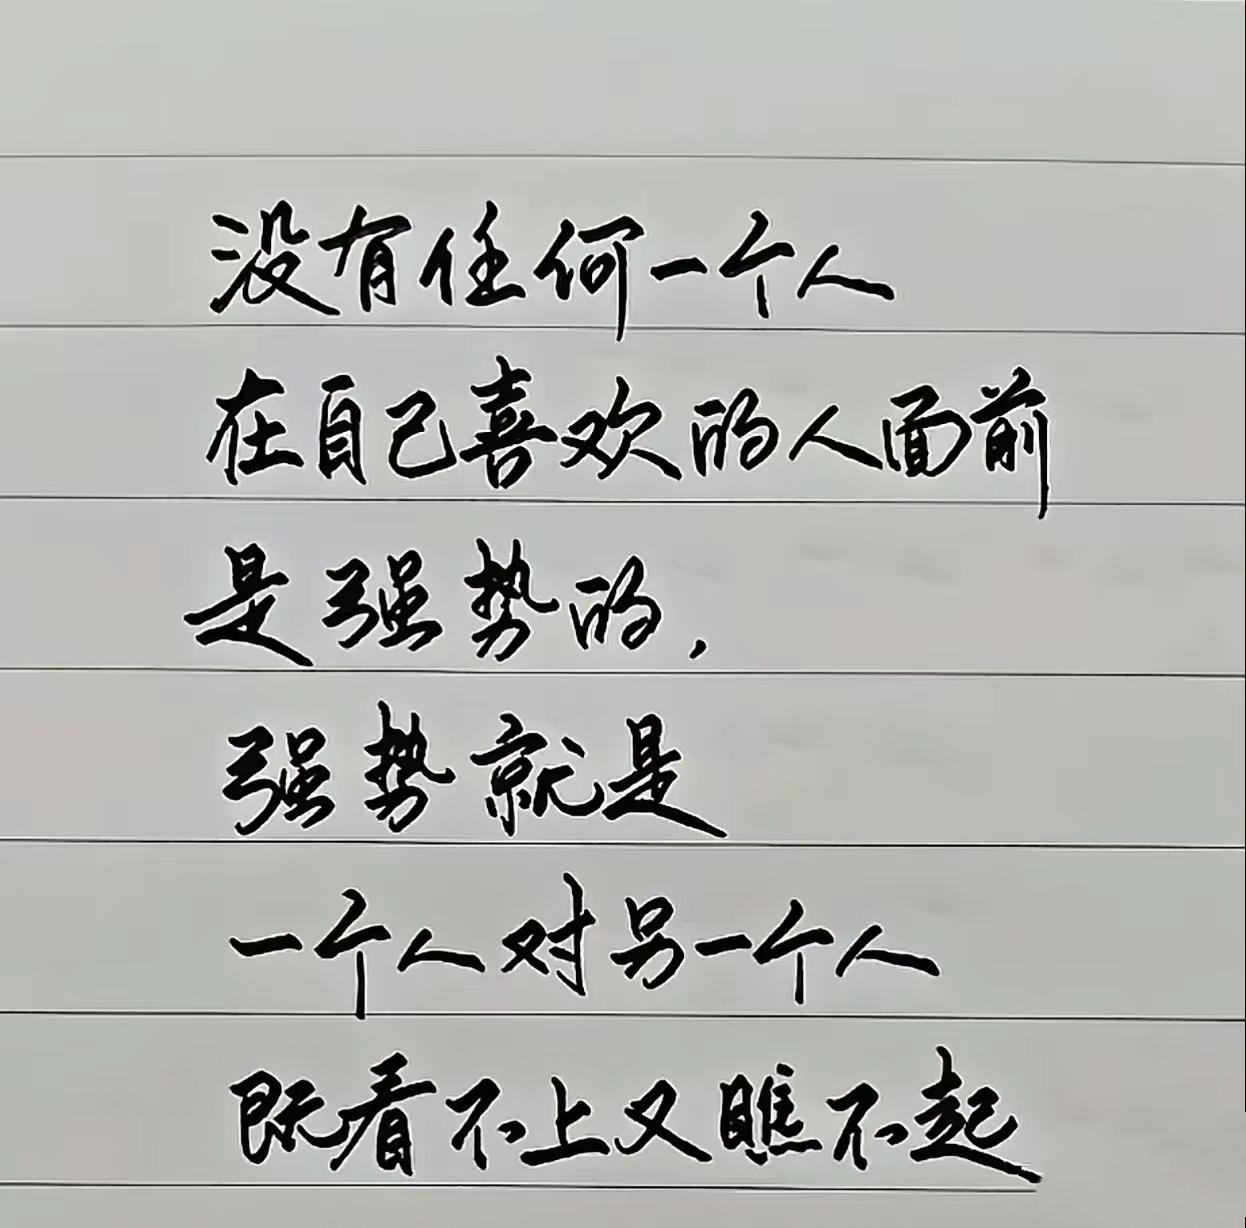 没有任何一个人
在自己喜欢的人面前
是强势的,
强势就是
一个人对另一个人
既看不上又瞧不起